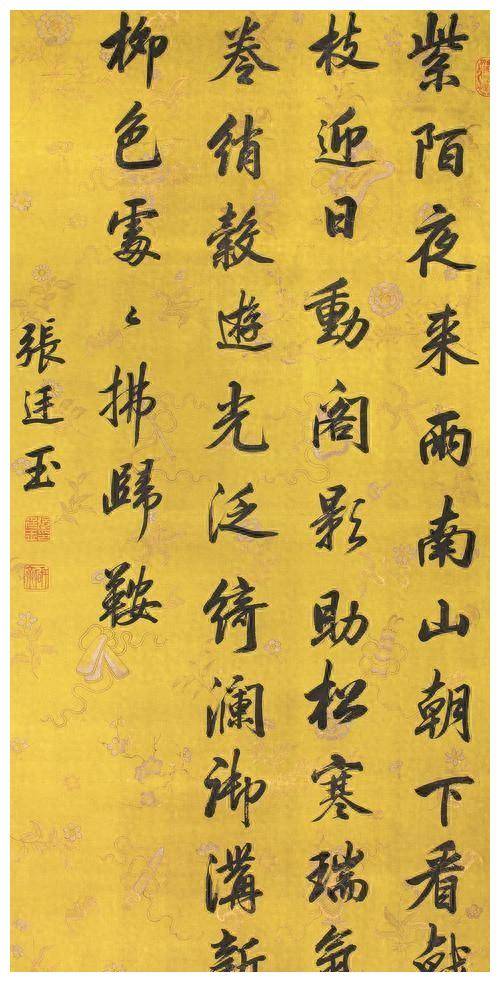 紫陌夜来雨南山朝下看戟
枝迎日動閣影助松寒瑞氣
卷綃縠遊光泛綺瀾御溝新
柳色處々拂歸鞍
張廷玉